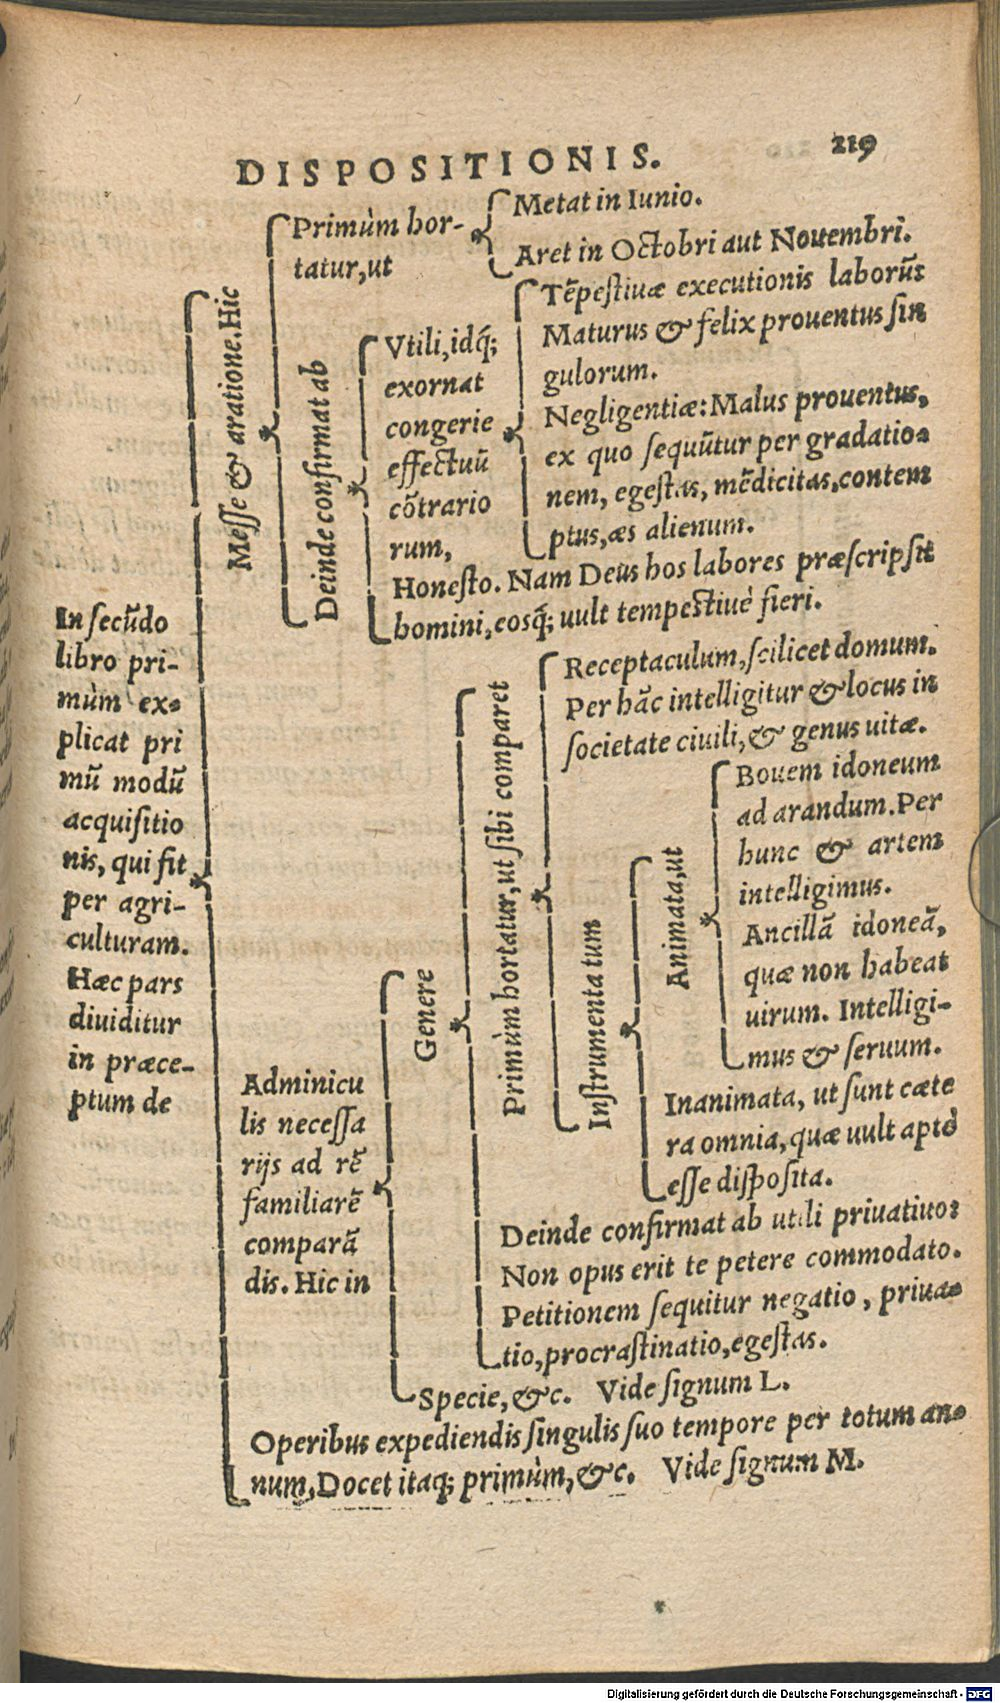 DISPOSITIONIS. 219
In secūdo
libro pri-
mùm ex-
plicat pri
mū modū
acquisitio
nis, qui fit
per agri-
culturam.
Hæc pars
diuiditur
in præce-
ptum de
Messe & aratione. Hic
Primùm hor-
tatur, ut
Metat in Iunio.
Aret in Octobri aut Nouembri.
Deinde confirmat ab
Vtili, idq́;
exornat
congerie
effectuū
cōtrario
rum,
Tēpestiuæ executionis laborū:
Maturus & felix prouentus sin
gulorum.
Negligentiæ: Malus prouentus,
ex quo sequūtur per gradatio-
nem, egestas, mēdicitas, contem
ptus, æs alienum.
Honesto. Nam Deus hos labores præscripsit
homini, eosq́; uult tempestiuè fieri.
Adminicu
lis necessa
rijs ad rē
familiarē
comparā
dis. Hic in
Genere
Primùm hortatur, ut sibi comparet
Receptaculum, scilicet domum.
Per hāc intelligitur & locus in
societate ciuili, & genus uitæ.
Instrumenta tum
Animata, ut
Bouem idoneum
ad arandum. Per
hunc & artem
intelligimus.
Ancillā idoneā,
quæ non habeat
uirum. Intelligi-
mus & seruum.
Inanimata, ut sunt cæte
ra omnia, quæ uult aptè
esse disposita.
Deinde confirmat ab utili priuatiuo:
Non opus erit te petere commodato.
Petitionem sequitur negatio, priua-
tio, procrastinatio, egestas.
Specie, &c. Vide signum L.
Operibus expediendis singulis suo tempore per totum an-
num, Docet itaq; primùm, &c. Vide signum M.
Digitalisierung gefördert durch die Deutsche Forschungsgemeinschaft - DFG